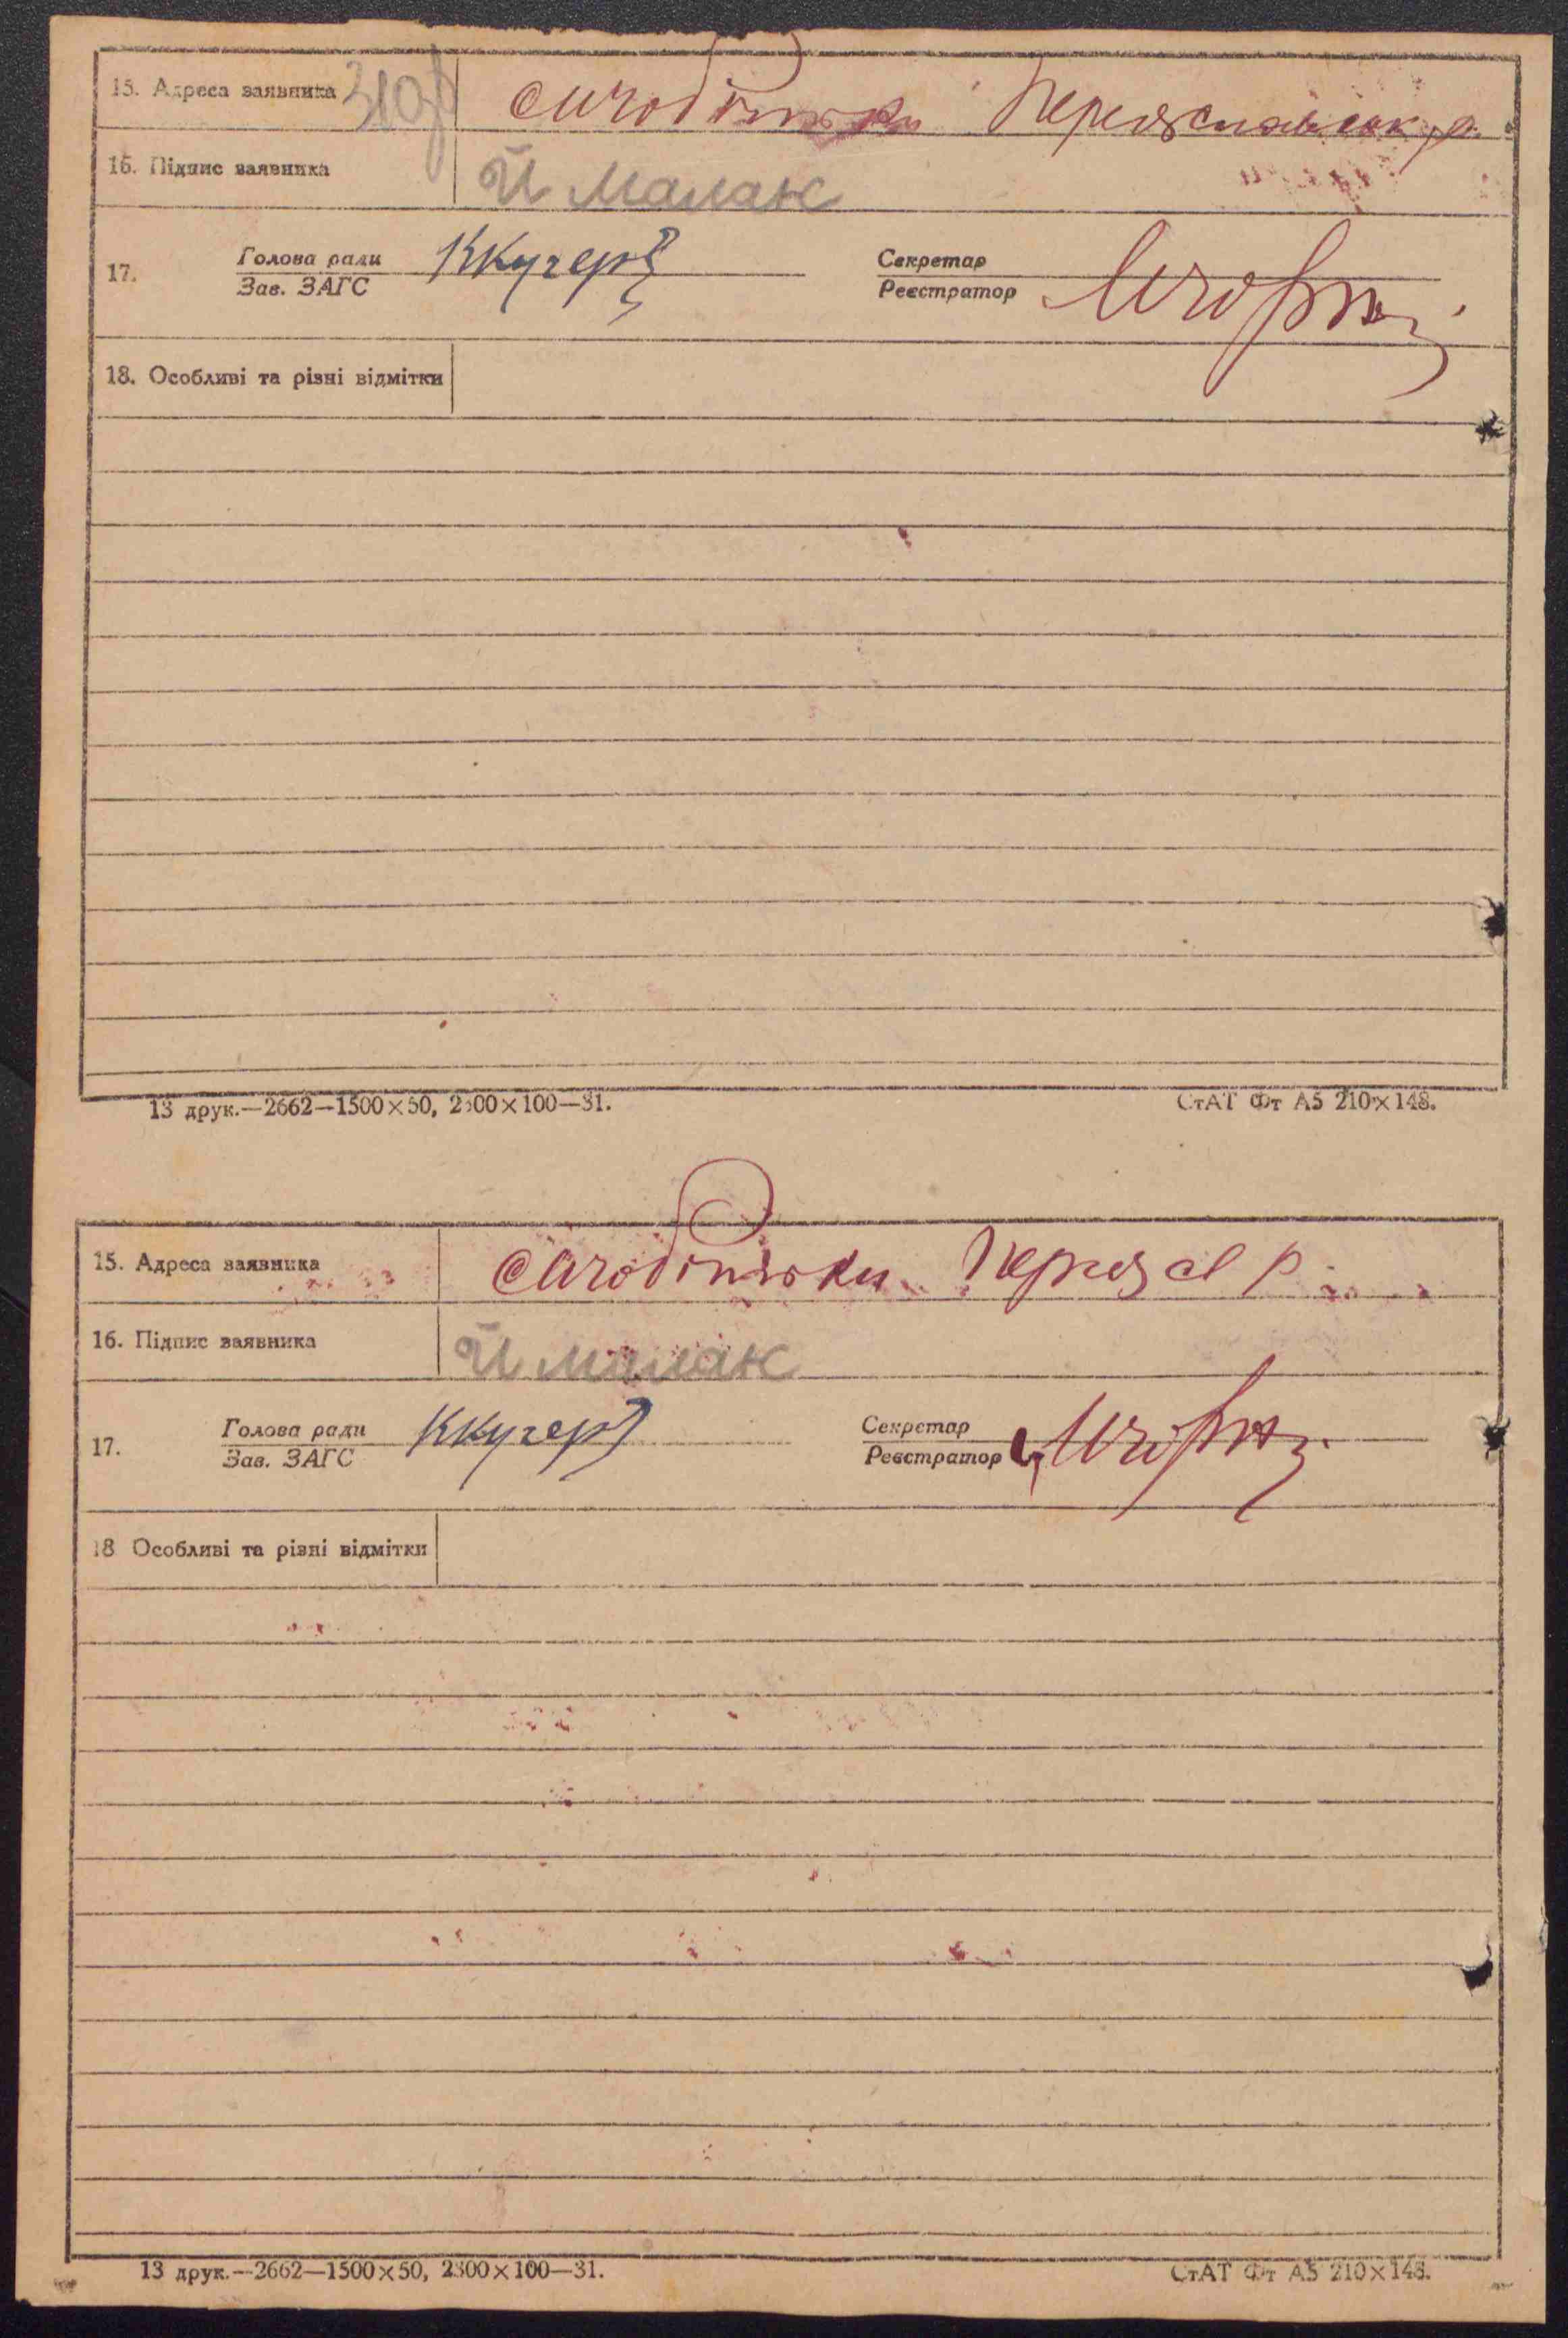 15. Адреса заявника 319 Переяславськ р.
16. Підпис заявника Й Малак
17. Голова ради ККучер Секретар
Зав. ЗАГС Реєстратор
18. Особливі та різні відмітки
13 друк.—2662—1500×50, 2300×100—31. СтАТ Фт А5 210×148.
15. Адреса заявника Переясл р.
16. Підпис заявника Й Малак
17. Голова ради ККучер Секретар
Зав. ЗАГС Реєстратор
18 Особливі та різні відмітки
13 друк.—2662—1500×50, 2300×100—31. СтАТ Фт А5 210×148.